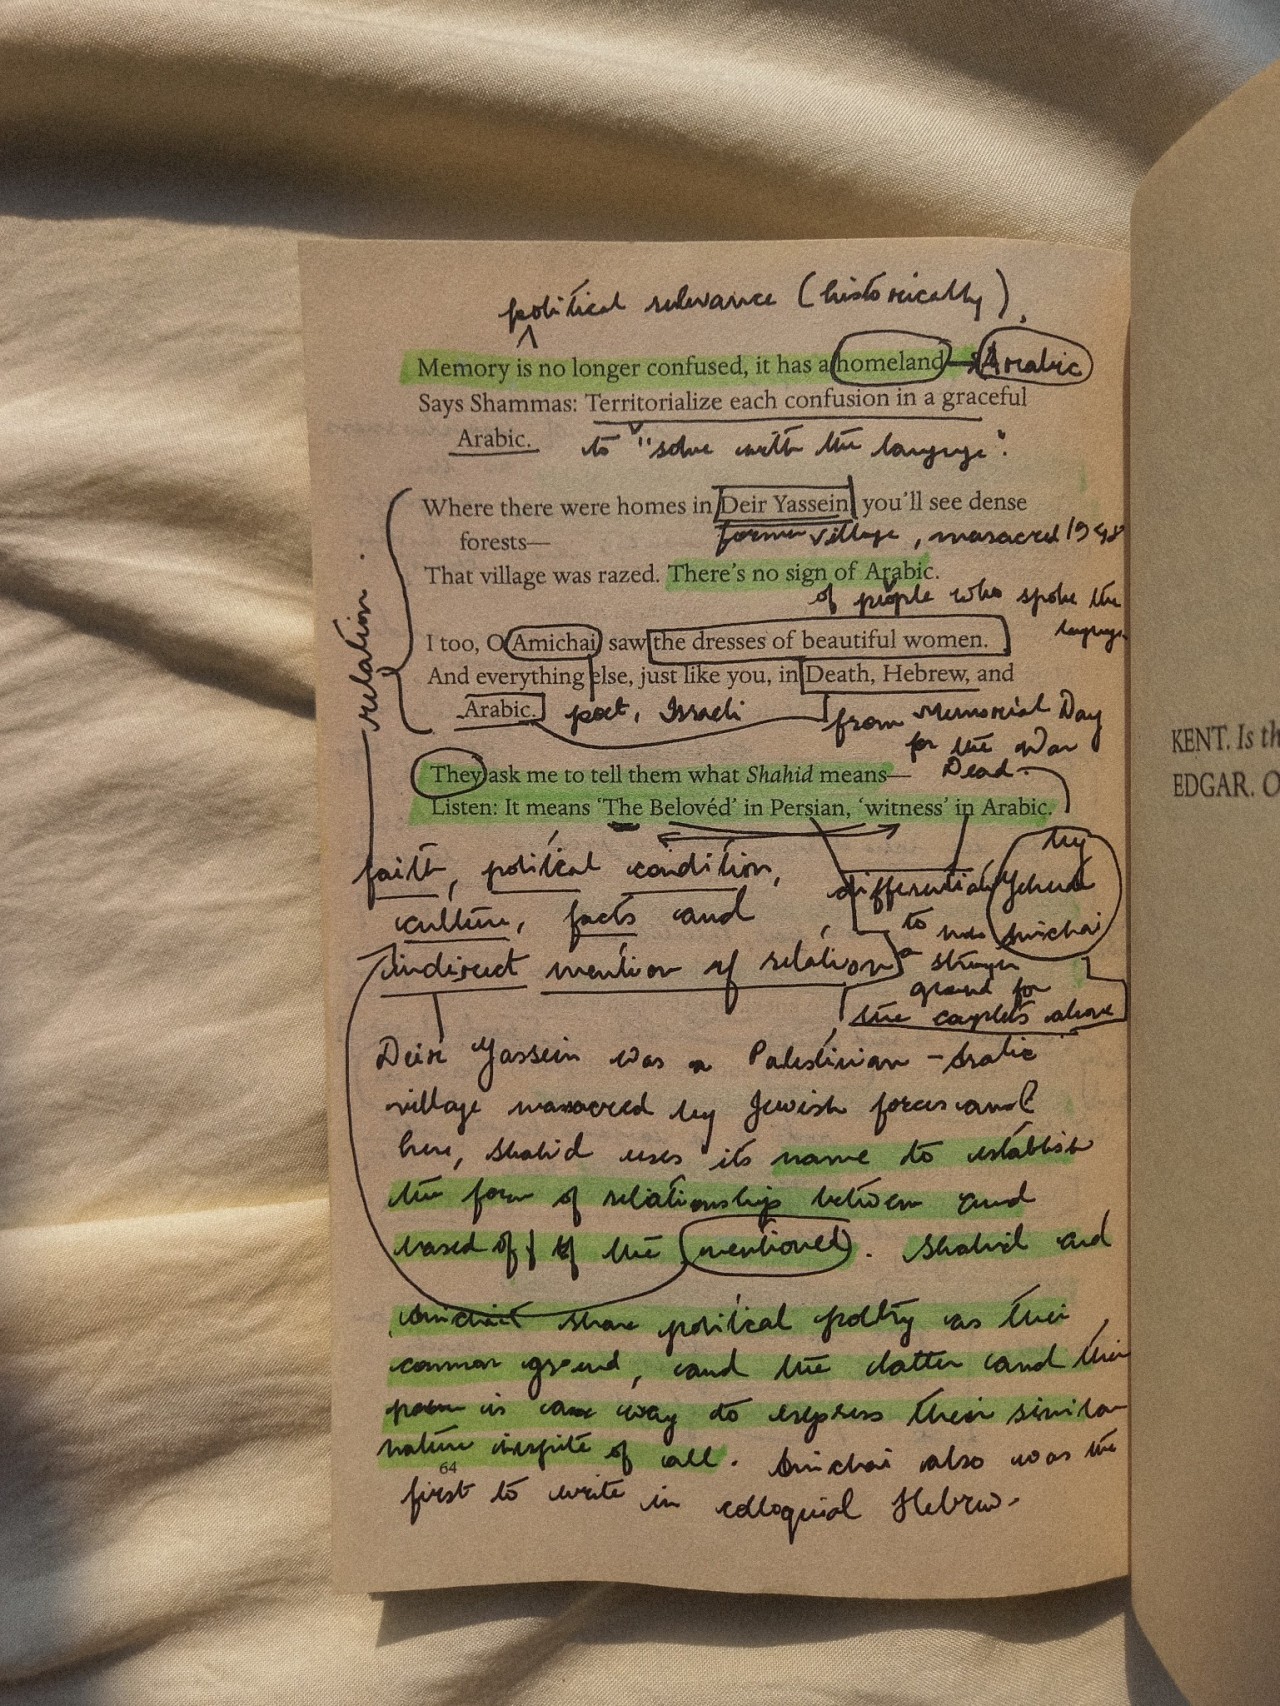 political relevance (historically).
Memory is no longer confused, it has a homeland — Arabic
Says Shammas: Territorialize each confusion in a graceful
Arabic.
to "solve with the language".
Where there were homes in Deir Yassein you'll see dense
forests—
former village, masacred 1948
That village was razed. There's no sign of Arabic.
of people who spoke the
language.
relation.
I too, O Amichai saw the dresses of beautiful women.
And everything else, just like you, in Death, Hebrew, and
Arabic.
poet, Israeli
from Memorial Day
for the War
Dead.
They ask me to tell them what Shahid means—
Listen: It means 'The Belovéd' in Persian, 'witness' in Arabic.
by
Yehuda
Amichai
faith, political condition,
culture, facts and
indirect mention of relation
to
stronger
ground for
the couplets above
Deir Yassein was a Palestinian - Arabic
village massacred by Jewish forces and
here, Shahid uses its name to establish
the form of relationship between and
based off of the mentioned. Shahid and
Amichai share political poetry as their
common ground, and the latter and their
poem is a way to express their similar
nature inspite of all. Amichai also was the
64
first to write in colloquial Hebrew.
KENT. Is th
EDGAR. O